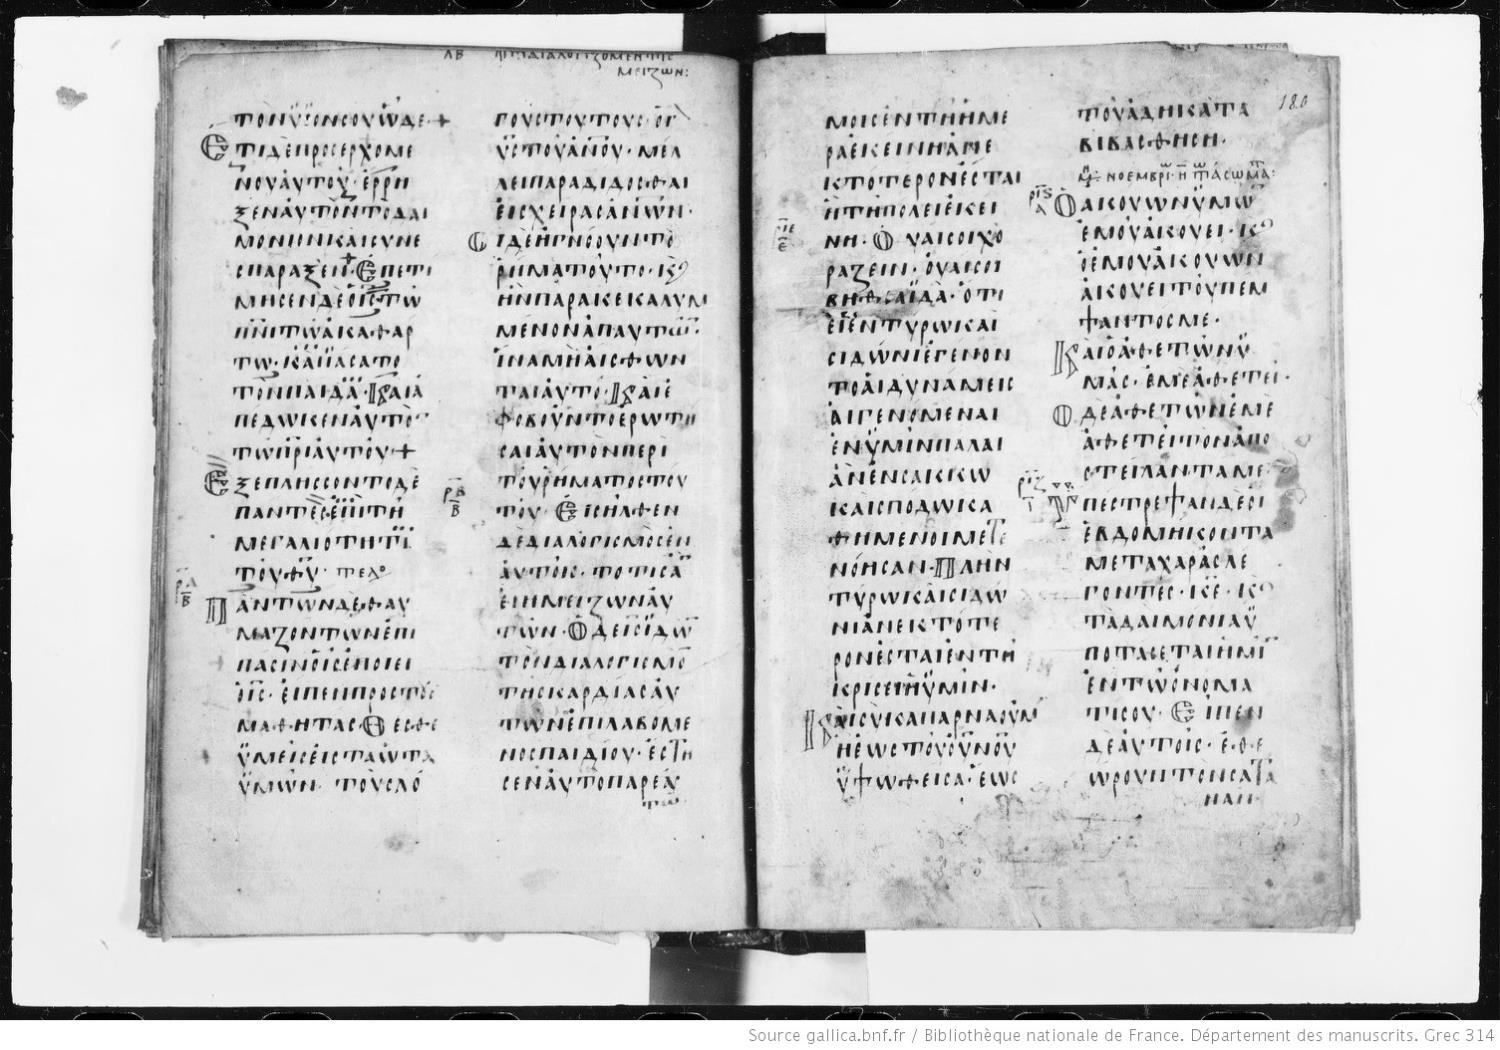 ΛΒ ΔΙΑΛΟΓΙΖΟΜΕΝ ΤΙϹ
ΜΕΙΖΩΝ:
ΤΟΝΥΪΟΝϹΟΥΩΔΕ +
ΕΤΙΔΕΠΡΟϹΕΡΧΟΜΕ
ΝΟΥΑΥΤΟΥ· ΕΡΡΗ
ΞΕΝΑΥΤΟΝΤΟΔΑΙ
ΜΟΝΙΟΝΚΑΙϹΥΝΕ
ϹΠΑΡΑΞΕΝ· ΕΠΕΤΙ
ΜΗϹΕΝΔΕΟΙϹΤΩ
ΠΝΙΤΩΑΚΑΘΑΡ
ΤΩ· ΚΑΙΪΑϹΑΤΟ
ΤΟΝΠΑΙΔΑ· ΚΑΙΑ
ΠΕΔΩΚΕΝΑΥΤΟ
ΤΩΠΡΙΑΥΤΟΥ +
ΕΞΕΠΛΗϹϹΟΝΤΟΔΕ
ΠΑΝΤΕϹΕΠΙΤΗ
ΜΕΓΑΛΙΟΤΗΤΙ
ΤΟΥΘΥ· ΤΕΛΟ
ΡΛ
Β
ΠΑΝΤΩΝΔΕΘΑΥ
ΜΑΖΟΝΤΩΝΕΠΙ
ΠΑϹΙΝΟΙϹΕΠΟΙΕΙ
ΙϹ· ΕΙΠΕΝΠΡΟϹΤΟΥϹ
ΜΑΘΗΤΑϹ· ΘΕϹΘΕ
ΥΜΕΙϹΕΙϹΤΑΩΤΑ
ΥΜΩΝ· ΤΟΥϹΛΟ
ΓΟΥϹΤΟΥΤΟΥϹ· ΟΓ
ΥϹΤΟΥΑΝΟΥ· ΜΕΛ
ΛΕΙΠΑΡΑΔΙΔΟϹΘΑΙ
ΕΙϹΧΕΙΡΑϹΑΝΩΝ·
ΟΙΔΕΗΓΝΟΟΥΝΤΟ
ΡΗΜΑΤΟΥΤΟ· Κϗ
ΗΝΠΑΡΑΚΕΚΑΛΥΜ
ΜΕΝΟΝΑΠΑΥΤΩ·
ΙΝΑΜΗΑΙϹΘΩΝ
ΤΑΙΑΥΤΟ· ΚΑΙΕ
ΦΟΒΟΥΝΤΟΕΡΩΤΗ
ϹΑΙΑΥΤΟΝΠΕΡΙ
ΤΟΥΡΗΜΑΤΟϹΤΟΥ
ΡΒ
Β
ΤΟΥ· ΕΙϹΗΛΘΕΝ
ΔΕΔΙΑΛΟΓΙϹΜΟϹΕΝ
ΑΥΤΟΙϹ· ΤΟΤΙϹΑ
ΕΙΗΜΕΙΖΩΝΑΥ
ΤΩΝ· ΟΔΕΙϹΪΔΩ
ΤΟΝΔΙΑΛΟΓΙϹΜΟ
ΤΗϹΚΑΡΔΙΑϹΑΥ
ΤΩΝΕΠΙΛΑΒΟΜΕ
ΝΟϹΠΑΙΔΙΟΥ· ΕϹΤΗ
ϹΕΝΑΥΤΟΠΑΡΕΑΥ
ΤΩ·
180
ΜΟΙϹΕΝΤΗΗΜΕ
ΡΑΕΚΕΙΝΗΑΝΕ
ΚΤΟΤΕΡΟΝΕϹΤΑΙ
ΗΤΗΠΟΛΕΙΕΚΕΙ
ΡΙΕ
Ε
ΝΗ· ΟΥΑΙϹΟΙΧΟ
ΡΑΖΕΙΝ· ΟΥΑΙϹΟΙ
ΒΗΘϹΑΪΔΑ· ΟΤΙ
ΕΙΕΝΤΥΡΩΚΑΙ
ϹΙΔΩΝΙΕΓΕΝΟΝ
ΤΟΑΙΔΥΝΑΜΕΙϹ
ΑΙΓΕΝΟΜΕΝΑΙ
ΕΝΥΜΙΝΠΑΛΑΙ
ΑΝΕΝϹΑΚΚΩ
ΚΑΙϹΠΟΔΩΚΑ
ΘΗΜΕΝΟΙΜΕΤΕ
ΝΟΗϹΑΝ· ΠΛΗΝ
ΤΥΡΩΚΑΙϹΙΔΩ
ΝΙΑΝΕΚΤΟΤΕ
ΡΟΝΕϹΤΑΙΕΝΤΗ
ΚΡΙϹΕΙΗΥΜΙΝ·
ΚΑΙϹΥΚΑΠΑΡΝΑΟΥΜ
ΗΕΩϹΤΟΥΟΥΝΟΥ
ΥΨΩΘΕΙϹΑ· ΕΩϹ
ΤΟΥΑΔΗΚΑΤΑ
ΒΙΒΑϹΘΗϹΗ·
ΝΟΕΜΒΡΙ· Η ΤΑϹΩΜΑ:
ΡΙϚ
Α
ΟΑΚΟΥΩΝΥΜΩ
ΕΜΟΥΑΚΟΥΕΙ· Κϗ
ΟΕΜΟΥΑΚΟΥΩΝ
ΑΚΟΥΕΙΤΟΥΠΕΜ
ΨΑΝΤΟϹΜΕ·
ΚΑΙΟΑΘΕΤΩΝΥ
ΜΑϹ· ΕΜΕΑΘΕΤΕΙ·
ΟΔΕΑΘΕΤΩΝΕΜΕ
ΑΘΕΤΕΙΤΟΝΑΠΟ
ϹΤΕΙΛΑΝΤΑΜΕ·
ΡΙΖ
Ι
ΥΠΕϹΤΡΕΨΑΝΔΕΟΙ
ΕΒΔΟΜΗΚΟΝΤΑ
ΜΕΤΑΧΑΡΑϹΛΕ
ΓΟΝΤΕϹ· ΚΕ· Κϗ
ΤΑΔΑΙΜΟΝΙΑΥ
ΠΟΤΑϹΕΤΑΙΗΜΙ
ΕΝΤΩΟΝΟΜΑ
ΤΙϹΟΥ· ΕΙΠΕΝ
ΔΕΑΥΤΟΙϹ· ΕΘΕ
ΩΡΟΥΝΤΟΝϹΑΤΑ
ΝΑΝ·
Source gallica.bnf.fr / Bibliothèque nationale de France. Département des manuscrits. Grec 314